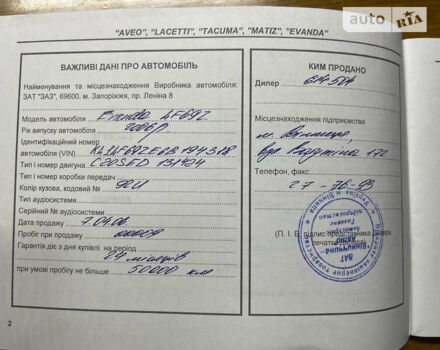 auto RIA
"AVEO", "LACETTI", "TACUMA", "MATIZ", "EVANDA"
ВАЖЛИВІ ДАНІ ПРО АВТОМОБІЛЬ
Найменування та місцезнаходження Виробника автомобіля:
ЗАТ "ЗАЗ", 69600, м. Запоріжжя, пр. Леніна 8
Модель автомобіля Evanda LF69Z
Рік випуску автомобіля 2006р
Ідентифікаційний номер
автомобіля (VIN)
Тип і номер двигуна C20SED
Тип і номер коробки передач
Колір кузова, кодовий № 92U
Тип аудіосистеми
Серійний № аудіосистеми
Дата продажу 7.04.06
Пробіг при продажу 00009
Гарантія діє з дня купівлі на період
24 місяців
при умові пробігу не більше 50000 км
2
КИМ ПРОДАНО
Дилер
Місцезнаходження підприємства
м. Вінниця
вул. 172
Телефон, факс
27-76-93
(П. І. Б. підпис представника Дилера
печатка Дилера)
ВАТ